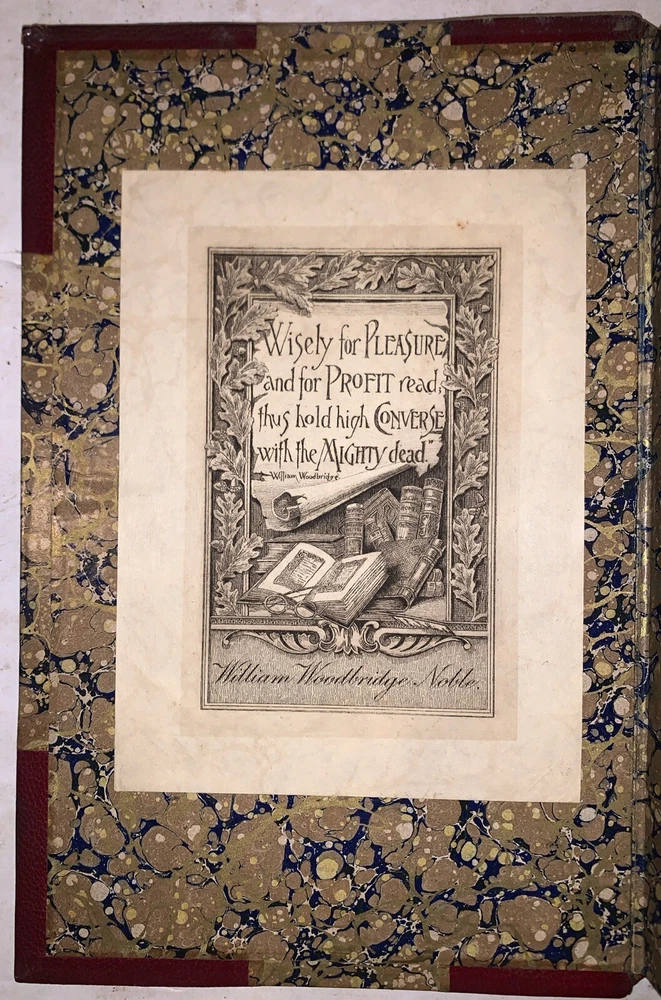 Wisely for PLEASURE
and for PROFIT read;
thus hold high CONVERSE
with the MIGHTY dead."
William Woodbridge
William Woodbridge Noble.